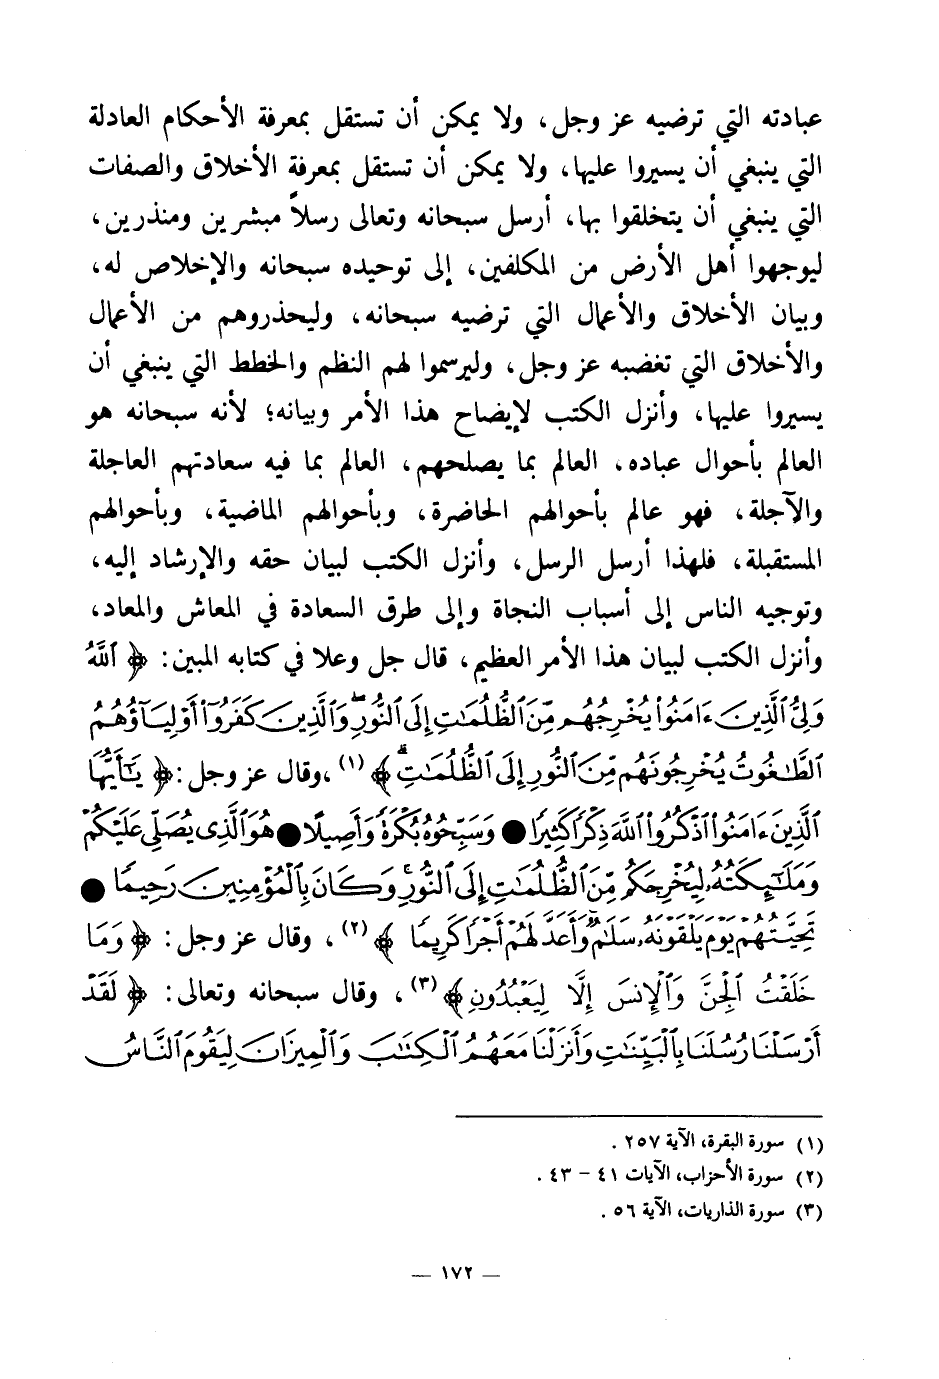 عبادته التي ترضيه عز وجل، ولا يمكن أن تستقل بمعرفة الأحكام العادلة
التي ينبغي أن يسيروا عليها، ولا يمكن أن تستقل بمعرفة الأخلاق والصفات
التي ينبغي أن يتخلقوا بها، أرسل سبحانه وتعالى رسلاً مبشرين ومنذرين،
ليوجهوا أهل الأرض من المكلفين، إلى توحيده سبحانه والإخلاص له،
وبيان الأخلاق والأعمال التي ترضيه سبحانه، وليحذروهم من الأعمال
والأخلاق التي تغضبه عز وجل، وليرسموا لهم النظم والخطط التي ينبغي أن
يسيروا عليها، وأنزل الكتب لإيضاح هذا الأمر وبيانه؛ لأنه سبحانه هو
العالم بأحوال عباده، العالم بما يصلحهم، العالم بما فيه سعادتهم العاجلة
والآجلة، فهو عالم بأحوالهم الحاضرة، وبأحوالهم الماضية، وبأحوالهم
المستقبلة، فلهذا أرسل الرسل، وأنزل الكتب لبيان حقه والإرشاد إليه،
وتوجيه الناس إلى أسباب النجاة وإلى طرق السعادة في المعاش والمعاد،
وأنزل الكتب لبيان هذا الأمر العظيم، قال جل وعلا في كتابه المبين: ﴿ ٱللَّهُ
وَلِيُّ ٱلَّذِينَ ءَامَنُواْ يُخْرِجُهُم مِّنَ ٱلظُّلُمَٰتِ إِلَى ٱلنُّورِۖ وَٱلَّذِينَ كَفَرُوٓاْ أَوْلِيَآؤُهُمُ
ٱلطَّٰغُوتُ يُخْرِجُونَهُم مِّنَ ٱلنُّورِ إِلَى ٱلظُّلُمَٰتِۗ ﴾ (١) ،وقال عز وجل :﴿ يَٰٓأَيُّهَا
ٱلَّذِينَ ءَامَنُواْ ٱذْكُرُواْ ٱللَّهَ ذِكْرًا كَثِيرًا ● وَسَبِّحُوهُ بُكْرَةً وَأَصِيلًا ● هُوَ ٱلَّذِى يُصَلِّى عَلَيْكُمْ
وَمَلَٰٓئِكَتُهُۥ لِيُخْرِجَكُم مِّنَ ٱلظُّلُمَٰتِ إِلَى ٱلنُّورِۚ وَكَانَ بِٱلْمُؤْمِنِينَ رَحِيمًا ●
تَحِيَّتُهُمْ يَوْمَ يَلْقَوْنَهُۥ سَلَٰمٌۚ وَأَعَدَّ لَهُمْ أَجْرًا كَرِيمًا ﴾ (٢) ، وقال عز وجل : ﴿ وَمَا
خَلَقْتُ ٱلْجِنَّ وَٱلْإِنسَ إِلَّا لِيَعْبُدُونِ ﴾ (٣) ، وقال سبحانه وتعالى: ﴿ لَقَدْ
أَرْسَلْنَا رُسُلَنَا بِٱلْبَيِّنَٰتِ وَأَنزَلْنَا مَعَهُمُ ٱلْكِتَٰبَ وَٱلْمِيزَانَ لِيَقُومَ ٱلنَّاسُ
(١) سورة البقرة، الآية ٢٥٧ .
(٢) سورة الأحزاب، الآيات ٤١ – ٤٣ .
(٣) سورة الذاريات، الآية ٥٦ .
— ١٧٢ —